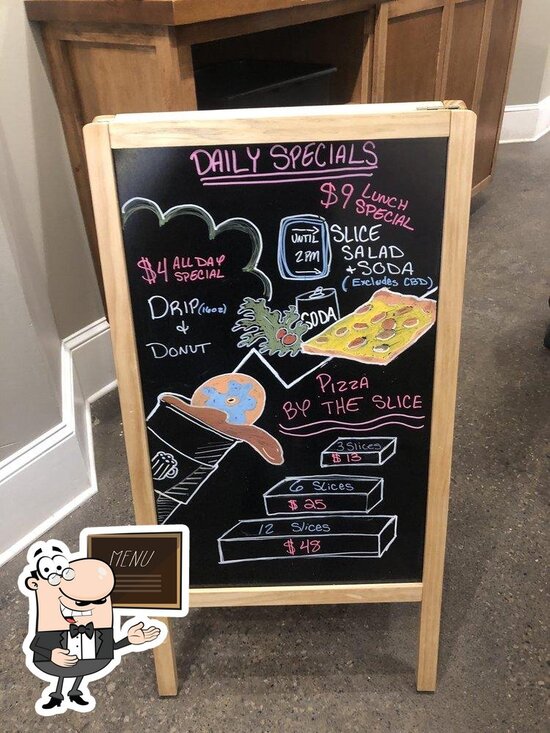 DAILY SPECIALS
$9 LUNCH
SPECIAL
UNTIL
2PM
SLICE
SALAD
+ SODA
(Excludes CBD)
$4 ALL DAY
SPECIAL
DRIP (16oz)
&
DONUT
SODA
PIZZA
BY THE SLICE
3 Slices
$13
6 Slices
$25
12 Slices
$48
MENU